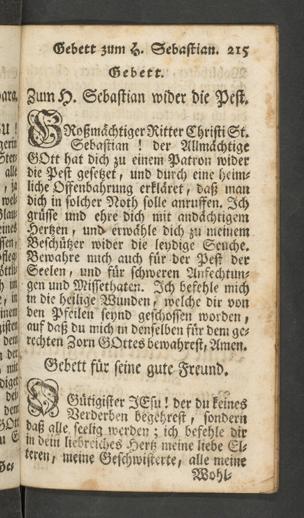 Gebett zum H. Sebastian. 215
Gebett.
Zum H. Sebastian wider die Pest.
GRoßmächtiger Ritter Christi St.
Sebastian! der Allmächtige
GOtt hat dich zu einem Patron wider
die Pest gesetzet, und durch eine heim-
liche Offenbahrung erkläret, daß man
dich in solcher Noth solle anruffen. Ich
grüsse und ehre dich mit andächtigem
Hertzen, und erwähle dich zu meinem
Beschützer wider die leydige Seuche.
Bewahre mich auch für der Pest der
Seelen, und für schweren Anfechtun-
gen und Missethaten. Ich befehle mich
in die heilige Wunden, welche dir von
den Pfeilen seynd geschossen worden,
auf daß du mich in denselben für dem ge-
rechten Zorn GOttes bewahrest, Amen.
Gebett für seine gute Freund.
O Gütigister JEsu! der du keines
Verderben begehrest, sondern
daß alle seelig werden; ich befehle dir
in dein liebreiches Hertz meine liebe El-
teren, meine Geschwisterte, alle meine
Wohl-